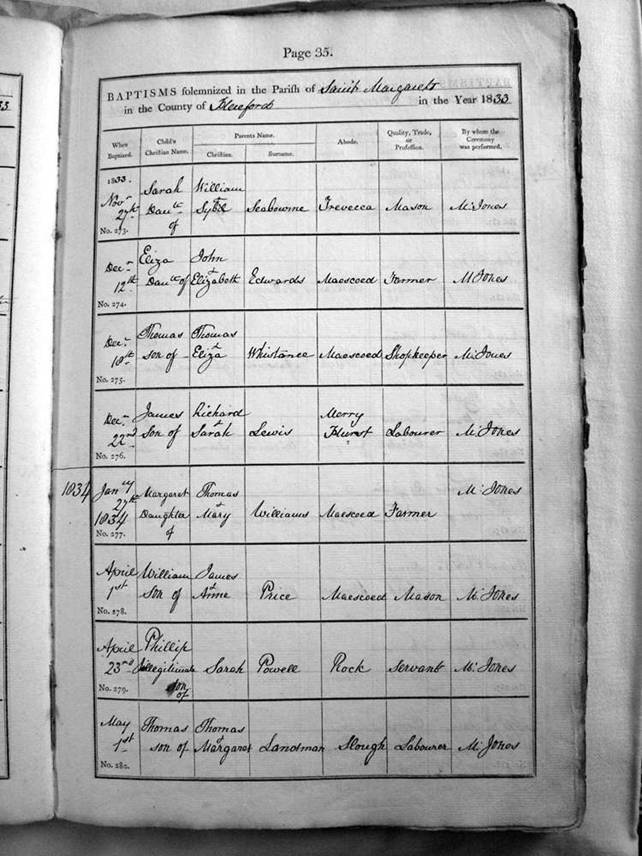 Page 35.
BAPTISMS solemnized in the Parish of Saint Margarets
in the County of Hereford in the Year 1833
When Baptized. Child's Christian Name. Parents Name. Christian. Surname. Abode. Quality, Trade, or Profession. By whom the Ceremony was performed.
1833. Novr 27th No. 273. Sarah Daute of William & Sybil Seabourne Trevecca Mason M. Jones
Decr 12th No. 274. Eliza Daute of John & Elizabeth Edwards Maescoed Farmer M. Jones
Decr 18th No. 275. Thomas son of Thomas & Eliza Whistance Maescoed Shopkeeper M. Jones
Decr 22nd No. 276. James Son of Richard & Sarah Lewis Merry Hurst Labourer M. Jones
1834 Jany 27th 1834 No. 277. Margaret Daughter of Thomas & Mary Williams Maescoed Farmer M. Jones
April 1st No. 278. William Son of James & Anne Price Maescoed Mason M. Jones
April 23rd No. 279. Phillip Illegitimate son of Sarah Powell Rock Servant M. Jones
May 1st No. 280. Thomas son of Thomas & Margaret Landsman Slough Labourer M. Jones